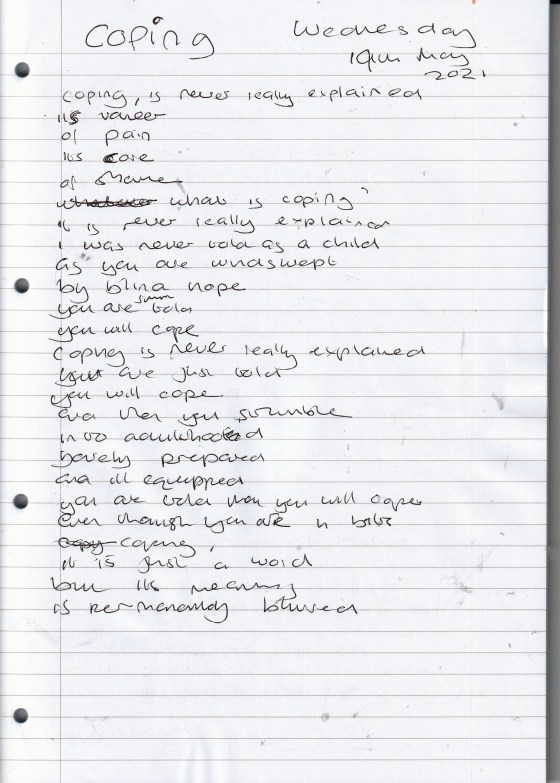 Coping
Wednesday
19th May
2021
coping, is never really explained
its vaneer
of pain
its core
of shame
whatever what is coping?
it is never really explained
I was never told as a child
as you are windswept
by blind hope
you are told
you will cope
coping is never really explained
your are just told
you will cope
and then you stumble
into adulthood
barely prepared
and ill equipped
you are told then you will cope
Even though you are in bits
copy coping,
it is just a word
but its meaning
is permanantly blurred